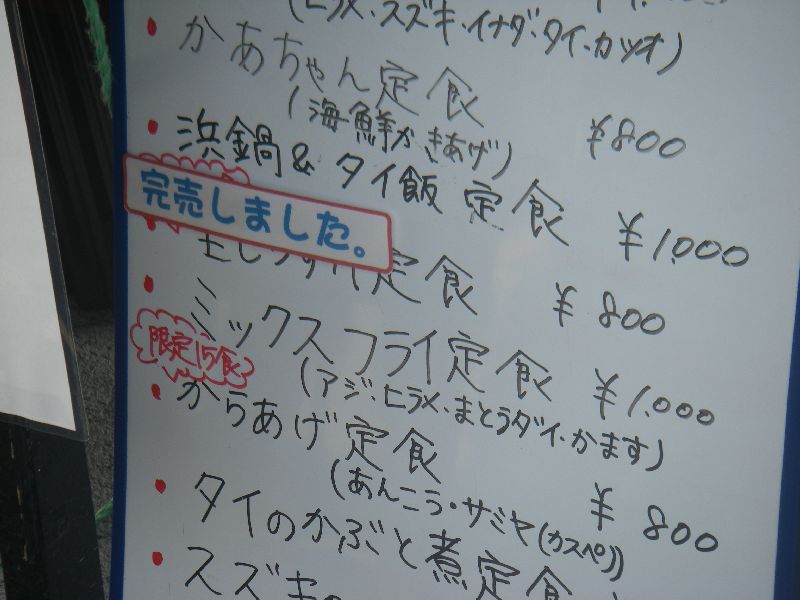 (ヒラメ・スズキ・イナダ・タイ・カツオ)
かあちゃん定食
(海鮮かきあげ) ¥800
浜鍋&タイ飯定食 ¥1,000
完売しました。
定食 ¥800
ミックスフライ定食 ¥1,000
限定15食
(アジ・ヒラメ・まとうダイ・かます)
からあげ定食 ¥800
(あんこう・サミヤ(カスペ))
タイのかぶと煮定食
スズキの